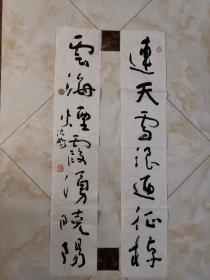 連天雪浪迎征棹
雲海煙霞湧曉陽